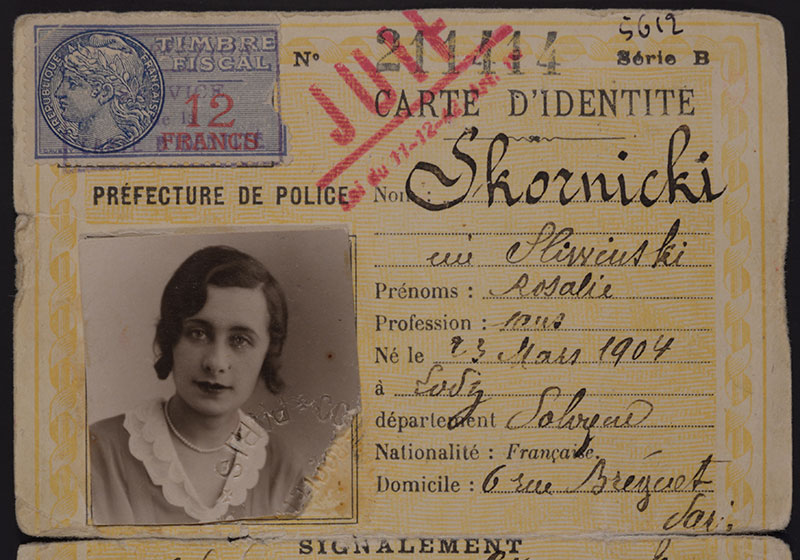 5612
TIMBRE
FISCAL
REPUBLIQUE FRANÇAISE
12
FRANCS
Nº 211414 Série B
JUIVE
Loi du 11-12-42
CARTE D'IDENTITÉ
PRÉFECTURE DE POLICE
Nom : Skornicki
Prénoms : Rosalie
Profession : sans
Né le 23 Mars 1904
à Lodz
département Pologne
Nationalité : Française.
Domicile : 6 rue Bréguet
Paris
SIGNALEMENT